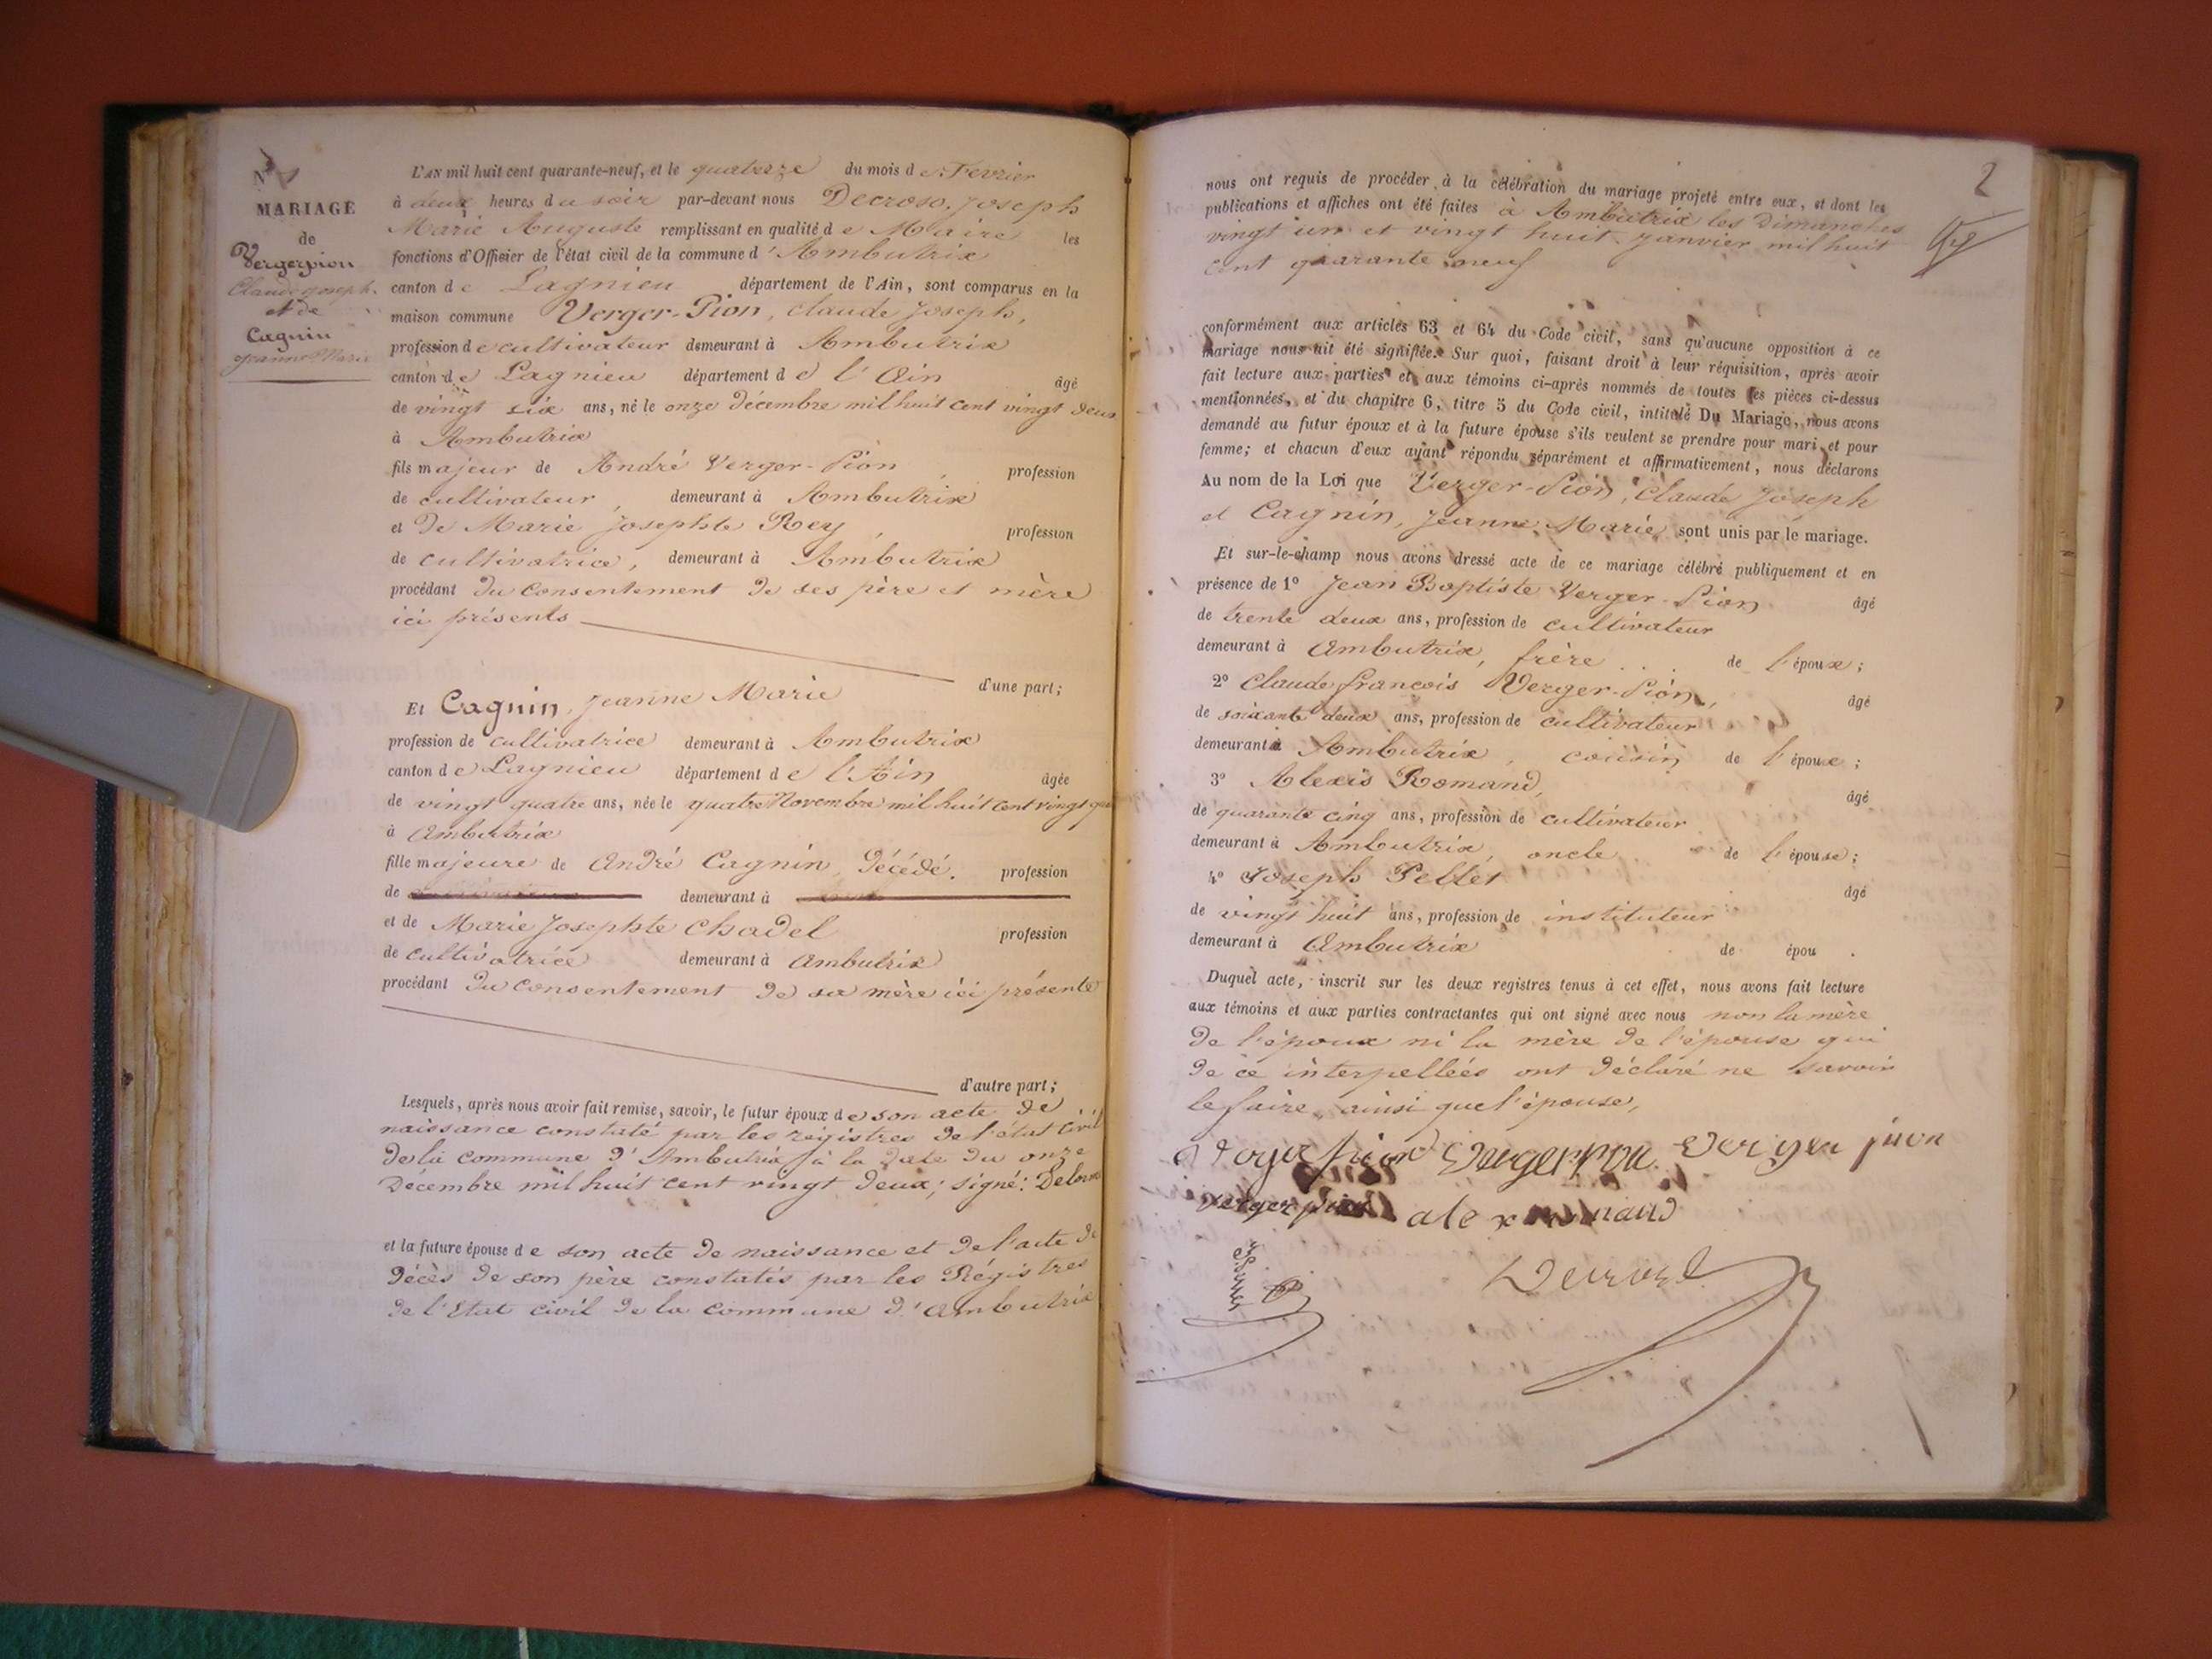 N° 1
MARIAGE
de
Vergerpion
Claude Joseph
et de
Cagnin
Jeanne Marie
L'AN mil huit cent quarante-neuf, et le quatorze du mois de Février
à deux heures du soir par-devant nous Decroso, Joseph
Marie Auguste remplissant en qualité de Maire les
fonctions d'Officier de l'état civil de la commune d'Ambutrix
canton de Lagnieu département de l'Ain, sont comparus en la
maison commune Verger-Pion, Claude Joseph,
profession de cultivateur demeurant à Ambutrix
canton de Lagnieu département de l'Ain âgé
de vingt six ans, né le onze Décembre mil huit cent vingt deux
à Ambutrix
fils majeur de André Verger-Pion, profession
de cultivateur, demeurant à Ambutrix
et de Marie Josephte Rey, profession
de cultivatrice, demeurant à Ambutrix
procédant du consentement de ses père et mère
ici présents
d'une part;
Et Cagnin, Jeanne Marie
profession de cultivatrice demeurant à Ambutrix
canton de Lagnieu département de l'Ain âgée
de vingt quatre ans, née le quatre Novembre mil huit cent vingt
à Ambutrix
fille majeure de André Cagnin, Décédé. profession
de demeurant à
et de Marie Josephte Chadel profession
de cultivatrice demeurant à Ambutrix
procédant du consentement de sa mère ici présente
d'autre part;
Lesquels, après nous avoir fait remise, savoir, le futur époux de son acte de
naissance constaté par les régistres de l'état civil
de la commune d'Ambutrix à la date du onze
Décembre mil huit cent vingt deux; signé:
et la future épouse de son acte de naissance et de l'acte de
décès de son père constatés par les Régistres
de l'Etat civil de la commune d'Ambutrix
2
nous ont requis de procéder à la célébration du mariage projeté entre eux, et dont les
publications et affiches ont été faites à Ambutrix les Dimanches
vingt un et vingt huit Janvier mil huit
cent quarante neuf
conformément aux articles 63 et 64 du Code civil, sans qu'aucune opposition à ce
mariage nous ait été signifiée. Sur quoi, faisant droit à leur réquisition, après avoir
fait lecture aux parties et aux témoins ci-après nommés de toutes les pièces ci-dessus
mentionnées, et du chapitre 6, titre 5 du Code civil, intitulé Du Mariage, nous avons
demandé au futur époux et à la future épouse s'ils veulent se prendre pour mari et pour
femme; et chacun d'eux ayant répondu séparément et affirmativement, nous déclarons
Au nom de la Loi que Verger-Pion, Claude Joseph
et Cagnin, Jeanne Marie, sont unis par le mariage.
Et sur-le-champ nous avons dressé acte de ce mariage célébré publiquement et en
présence de 1° Jean Baptiste Verger-Pion âgé
de trente deux ans, profession de cultivateur
demeurant à Ambutrix, frère de l'époux;
2° Claude François Verger-Pion, âgé
de soixante deux ans, profession de cultivateur
demeurant à Ambutrix, cousin de l'époux;
3° Alexis Romand, âgé
de quarante cinq ans, profession de cultivateur
demeurant à Ambutrix, oncle de l'épouse;
4° Joseph Pellet âgé
de vingt huit ans, profession de instituteur
demeurant à Ambutrix de épou .
Duquel acte, inscrit sur les deux registres tenus à cet effet, nous avons fait lecture
aux témoins et aux parties contractantes qui ont signé avec nous non la mère
de l'époux ni la mère de l'épouse qui
de ce interpellées ont déclaré ne savoir
le faire, ainsi que l'épouse,
Vergerpion verger pion
verger pion